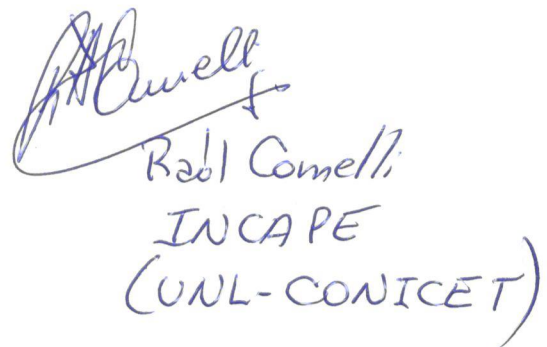 RAComelli
Raúl Comelli
INCAPE
(UNL-CONICET)